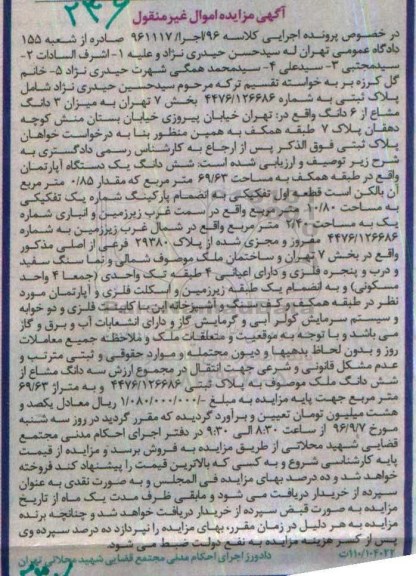 ۲۴۶
آگهی مزایده اموال غیر منقول
در خصوص پرونده اجرایی کلاسه ۹۶/اجرا/ ۹۶۱۱۱۷ صادره از شعبه ۱۵۵
دادگاه عمومی تهران له سیدحسن حیدری نژاد و علیه ۱- اشرف السادات ۲-
سیدمجتبی ۳- سیدعلی ۴- سیدمحمد همگی شهرت حیدری نژاد ۵- خانم
گل کرزه بر به خواسته تقسیم ترکه مرحوم سیدحسین حیدری نژاد شامل
پلاک ثبتی به شماره ۴۴۷۶/۱۲۶۶۸۶ بخش ۷ تهران به میزان ۳ دانگ
مشاع از ۶ دانگ واقع در: تهران خیابان پیروزی خیابان بستان منش کوچه
دهقان پلاک ۷ طبقه همکف به همین منظور بنا به درخواست خواهان
پلاک ثبتی فوق الذکر پس از ارجاع به کارشناس رسمی دادگستری به
شرح زیر توصیف و ارزیابی شده است: شش دانگ یک دستگاه آپارتمان
واقع در طبقه همکف به مساحت ۶۹/۶۳ متر مربع که مقدار ۰/۸۵ متر مربع
آن بالکن است قطعه اول تفکیکی به انضمام پارکینگ شماره یک تفکیکی
به مساحت ۱۰/۸۰ متر مربع واقع در سمت غرب زیرزمین و انباری شماره
یک به مساحت ۲/۴۰ متر مربع واقع در شمال غرب زیرزمین به شماره
۴۴۷۶/۱۲۶۶۸۶ مفروز و مجزی شده از پلاک ۲۹۳۸۰ فرعی از اصلی مذکور
واقع در بخش ۷ تهران و ساختمان ملک موصوف شمالی و نما سنگ سفید
و درب و پنجره فلزی و دارای اعیانی ۴ طبقه تک واحدی (جمعا ۴ واحد
مسکونی) و به انضمام یک طبقه زیرزمین و اسکلت فلزی و آپارتمان مورد
نظر در طبقه همکف و کف سنگ و آشپزخانه اپن با کابینت فلزی و دو خوابه
و سیستم سرمایش کولر آبی و گرمایش گاز و دارای انشعابات آب و برق و گاز
می باشد و با توجه به موقعیت و متعلقات ملک و ملاحظه جمیع معاملات
روز و بدون لحاظ بدهیها و دیون محتمله و موارد حقوقی و ثبتی مترتب و
عدم مشکل قانونی و شرعی جهت انتقال در مجموع ارزش سه دانگ مشاع از
شش دانگ ملک موصوف به پلاک ثبتی ۴۴۷۶/۱۲۶۶۸۶ و به متراژ ۶۹/۶۳
متر مربع جهت پایه مزایده به مبلغ ۱/۰۸۰/۰۰۰/۰۰۰ ریال معادل یکصد و
هشت میلیون تومان تعیین و برآورد گردیده که مقرر گردید در روز سه شنبه
مورخ ۹۶/۹/۷ از ساعت ۸:۳۰ الی ۹:۳۰ در دفتر اجرای احکام مدنی مجتمع
قضایی شهید محلاتی از طریق مزایده به فروش برسد و مزایده از قیمت
پایه کارشناسی شروع و به کسی که بالاترین قیمت را پیشنهاد کند فروخته
خواهد شد و ده درصد بهای مزایده فی المجلس و به صورت نقدی به عنوان
سپرده از خریدار دریافت می شود و مابقی ظرف مدت یک ماه از تاریخ
مزایده به صورت قبض سپرده از خریدار دریافت خواهد شد و چنانچه برنده
مزایده به هر دلیل در زمان مقرر، بهای مزایده را نپردازد ده درصد سپرده وی
پس از کسر هزینه مزایده به نفع دولت ضبط می شود.
۱۱۰/۱۰۴۰۲۲/ت دادورز اجرای احکام مدنی مجتمع قضایی شهید محلاتی تهران